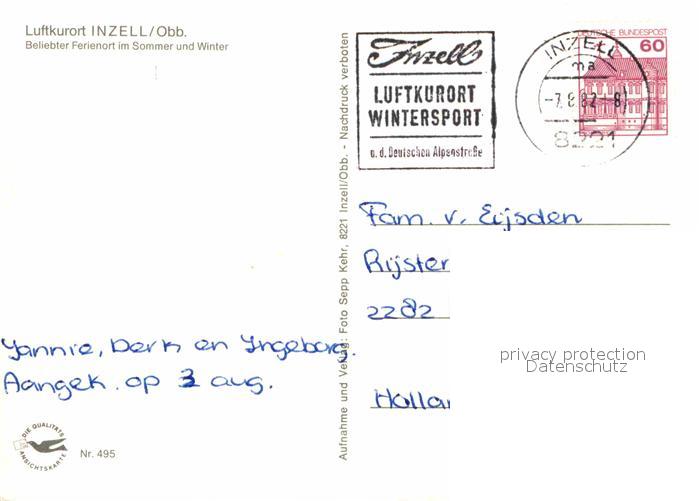 Luftkurort INZELL/Obb.
Beliebter Ferienort im Sommer und Winter
Inzell
LUFTKURORT
WINTERSPORT
a. d. Deutschen Alpenstraße
INZELL
ma
-7.8.82 -8
8221
DEUTSCHE BUNDESPOST
60
Aufnahme und Verlag: Foto Sepp Kehr, 8221 Inzell/Obb. - Nachdruck verboten
Fam. v. Eijsden
Rijster
2282
Hollan
privacy protection
Datenschutz
Yannie, Derk en Yngeborg.
Aangek. op 3 aug.
DIE QUALITÄTS
ANSICHTSKARTE
Nr. 495